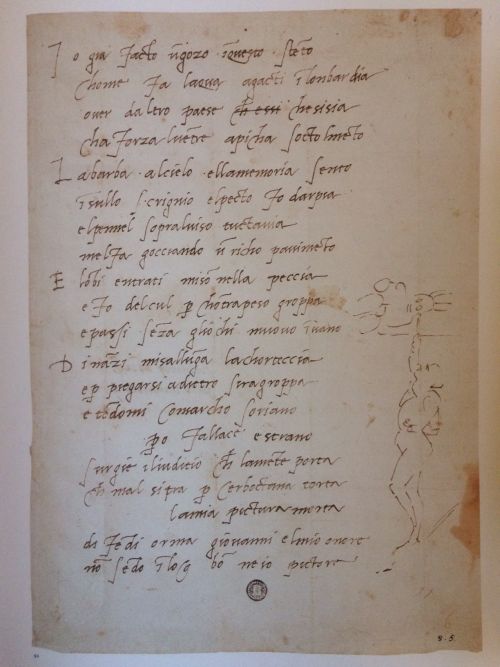 I o gia facto ūgozo īquesto stēto
chome fa laqua agacti ī lonbardia
over daltro paese ch̄ essi ch̄esisia
cha forza lvētre apicha socto lmēto
L abarba alcielo ellamemoria sento
īsullo scrignio elpecto fo darpia
elpennel sopraluiso tuctavia
melfa gocciando ū richo pavimēto
E lobi entrati misō nella peccia
e fo delcul p chōtrapeso groppa
e passi sēza gliochi muovo ī vano
D ināzi misallūga lachorteccia
e p piegarsi adietro siragroppa
e tēdomi comarcho soriano
po fallace e strano
surgie iliudicio ch̄ lamēte porta
ch̄ mal sitra p cerboctana torta
lamia pictura morta
di fēdi orma giovanni elmio onore
nō sēdo ī bō ne io pictore
8.5